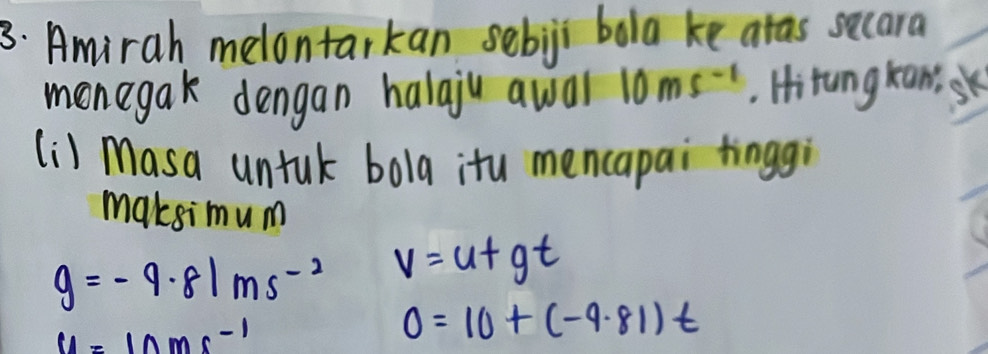 3. Amirah melontarkan sebiji bola ke atas secara
menegak dengan halaju awal 10 ms⁻¹. Hitungkan:
(i) Masa untuk bola itu mencapai tinggi
maksimum
g = -9.81 ms⁻² v = u + gt
u = 10 ms⁻¹ 0 = 10 + (-9.81) t